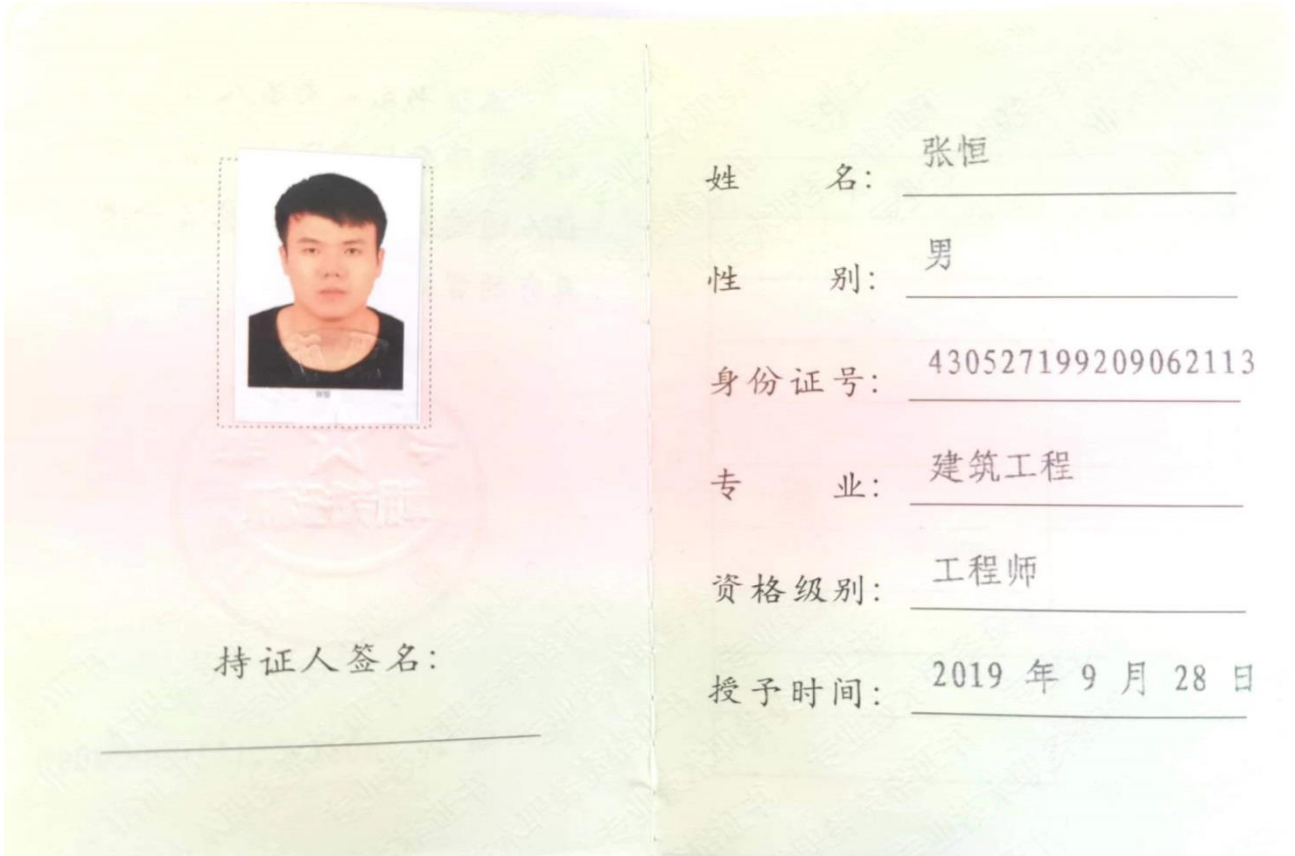 持证人签名：
姓 名： 张恒
性 别： 男
身份证号： 430527199209062113
专 业： 建筑工程
资格级别： 工程师
授予时间： 2019 年 9 月 28 日